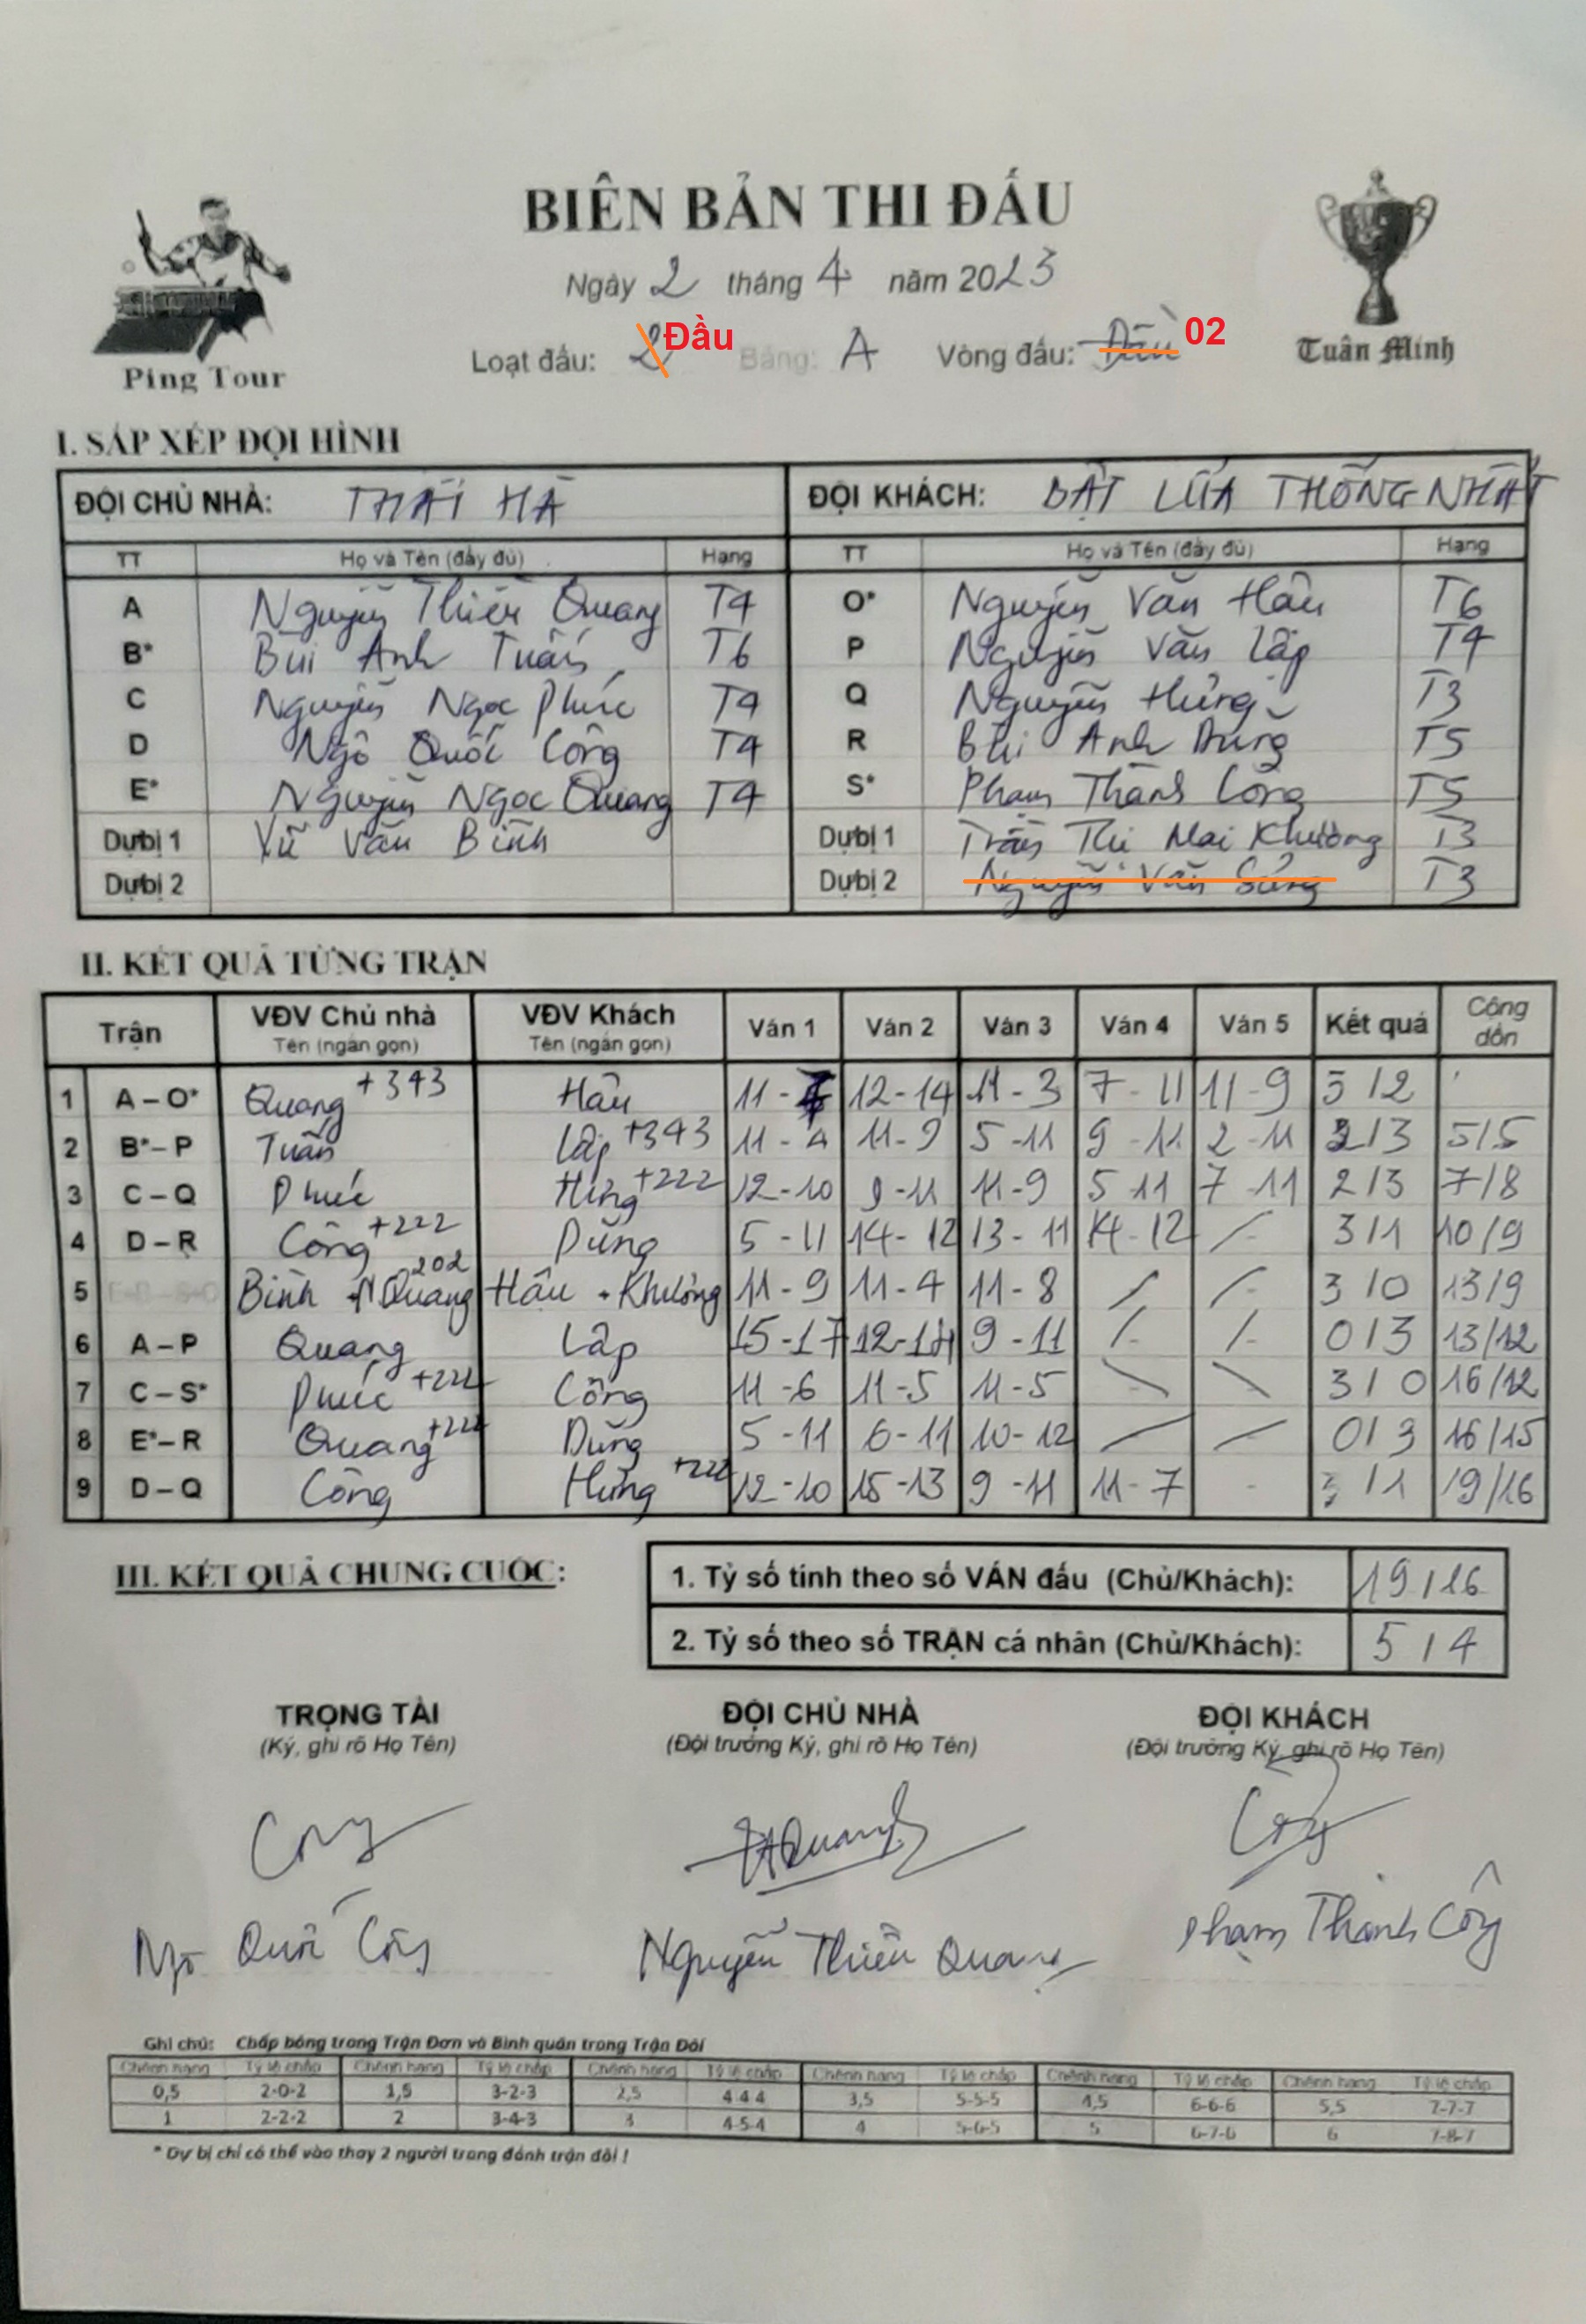 BIÊN BẢN THI ĐẤU
Ngày 2 tháng 4 năm 2023
Loạt đấu: 2 Đầu Bảng: A Vòng đấu: Đầu 02
Ping Tour
Tuấn Minh
I. SẮP XẾP ĐỘI HÌNH
ĐỘI CHỦ NHÀ: THÁI HÀ ĐỘI KHÁCH: BẬT LỬA THỐNG NHẤT
TT Họ và Tên (đầy đủ) Hạng TT Họ và Tên (đầy đủ) Hạng
A Nguyễn Thiều Quang T4 O* Nguyễn Văn Hậu T6
B* Bùi Anh Tuấn T6 P Nguyễn Văn Lập T4
C Nguyễn Ngọc Phúc T4 Q Nguyễn Hưng T3
D Ngô Quốc Công T4 R Bùi Anh Dũng T5
E* Nguyễn Ngọc Quang T4 S* Phạm Thành Công T5
Dự bị 1 Vũ Văn Bình Dự bị 1 Trần Thị Mai Khương T3
Dự bị 2 Dự bị 2 Nguyễn Văn T3
II. KẾT QUẢ TỪNG TRẬN
Trận VĐV Chủ nhà Tên (ngắn gọn) VĐV Khách Tên (ngắn gọn) Ván 1 Ván 2 Ván 3 Ván 4 Ván 5 Kết quả Cộng dồn
1 A – O* Quang +343 Hậu 11 - 7 12 - 14 11 - 3 7 - 11 11 - 9 3 / 2
2 B* – P Tuấn Lập +343 11 - 4 11 - 9 5 - 11 9 - 11 2 - 11 2 / 3 5/5
3 C – Q Phúc Hưng +222 12 - 10 9 - 11 11 - 9 5 11 7 - 11 2 / 3 7/8
4 D – R Công +222 Dũng 5 - 11 14 - 12 13 - 11 14 - 12 / 3 / 1 10/9
5 E-B – S-O Bình + N Quang 202 Hậu + Khương 11 - 9 11 - 4 11 - 8 / / 3 / 0 13/9
6 A – P Quang Lập 15 - 17 12 - 14 9 - 11 / / 0 / 3 13/12
7 C – S* Phúc +222 Công 11 - 6 11 - 5 11 - 5 \ \ 3 / 0 16/12
8 E* – R Quang +222 Dũng 5 - 11 6 - 11 10 - 12 / / 0 / 3 16/15
9 D – Q Công Hưng +222 12 - 10 15 - 13 9 - 11 11 - 7 - 3 / 1 19/16
III. KẾT QUẢ CHUNG CUỘC:
1. Tỷ số tính theo số VÁN đấu (Chủ/Khách): 19 / 16
2. Tỷ số theo số TRẬN cá nhân (Chủ/Khách): 5 / 4
TRỌNG TÀI ĐỘI CHỦ NHÀ ĐỘI KHÁCH
(Ký, ghi rõ Họ Tên) (Đội trưởng Ký, ghi rõ Họ Tên) (Đội trưởng Ký, ghi rõ Họ Tên)
Ngô Quốc Công Nguyễn Thiều Quang Phạm Thành Công
Ghi chú: Chấp bóng trong Trận Đơn và Bình quân trong Trận Đôi
Chênh hạng Tỷ lệ chấp Chênh hạng Tỷ lệ chấp Chênh hạng Tỷ lệ chấp Chênh hạng Tỷ lệ chấp Chênh hạng Tỷ lệ chấp Chênh hạng Tỷ lệ chấp
0,5 2-0-2 1,5 3-2-3 2,5 4-4-4 3,5 5-5-5 4,5 6-6-6 5,5 7-7-7
1 2-2-2 2 3-4-3 3 4-5-4 4 5-6-5 5 6-7-6 6 7-8-7
* Dự bị chỉ có thể vào thay 2 người trong đánh trận đôi !